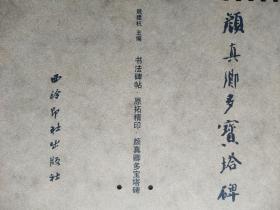 颜真卿多寶塔碑
姚建杭 主编
书法碑帖·原拓精印·颜真卿多宝塔碑
西泠印社出版社